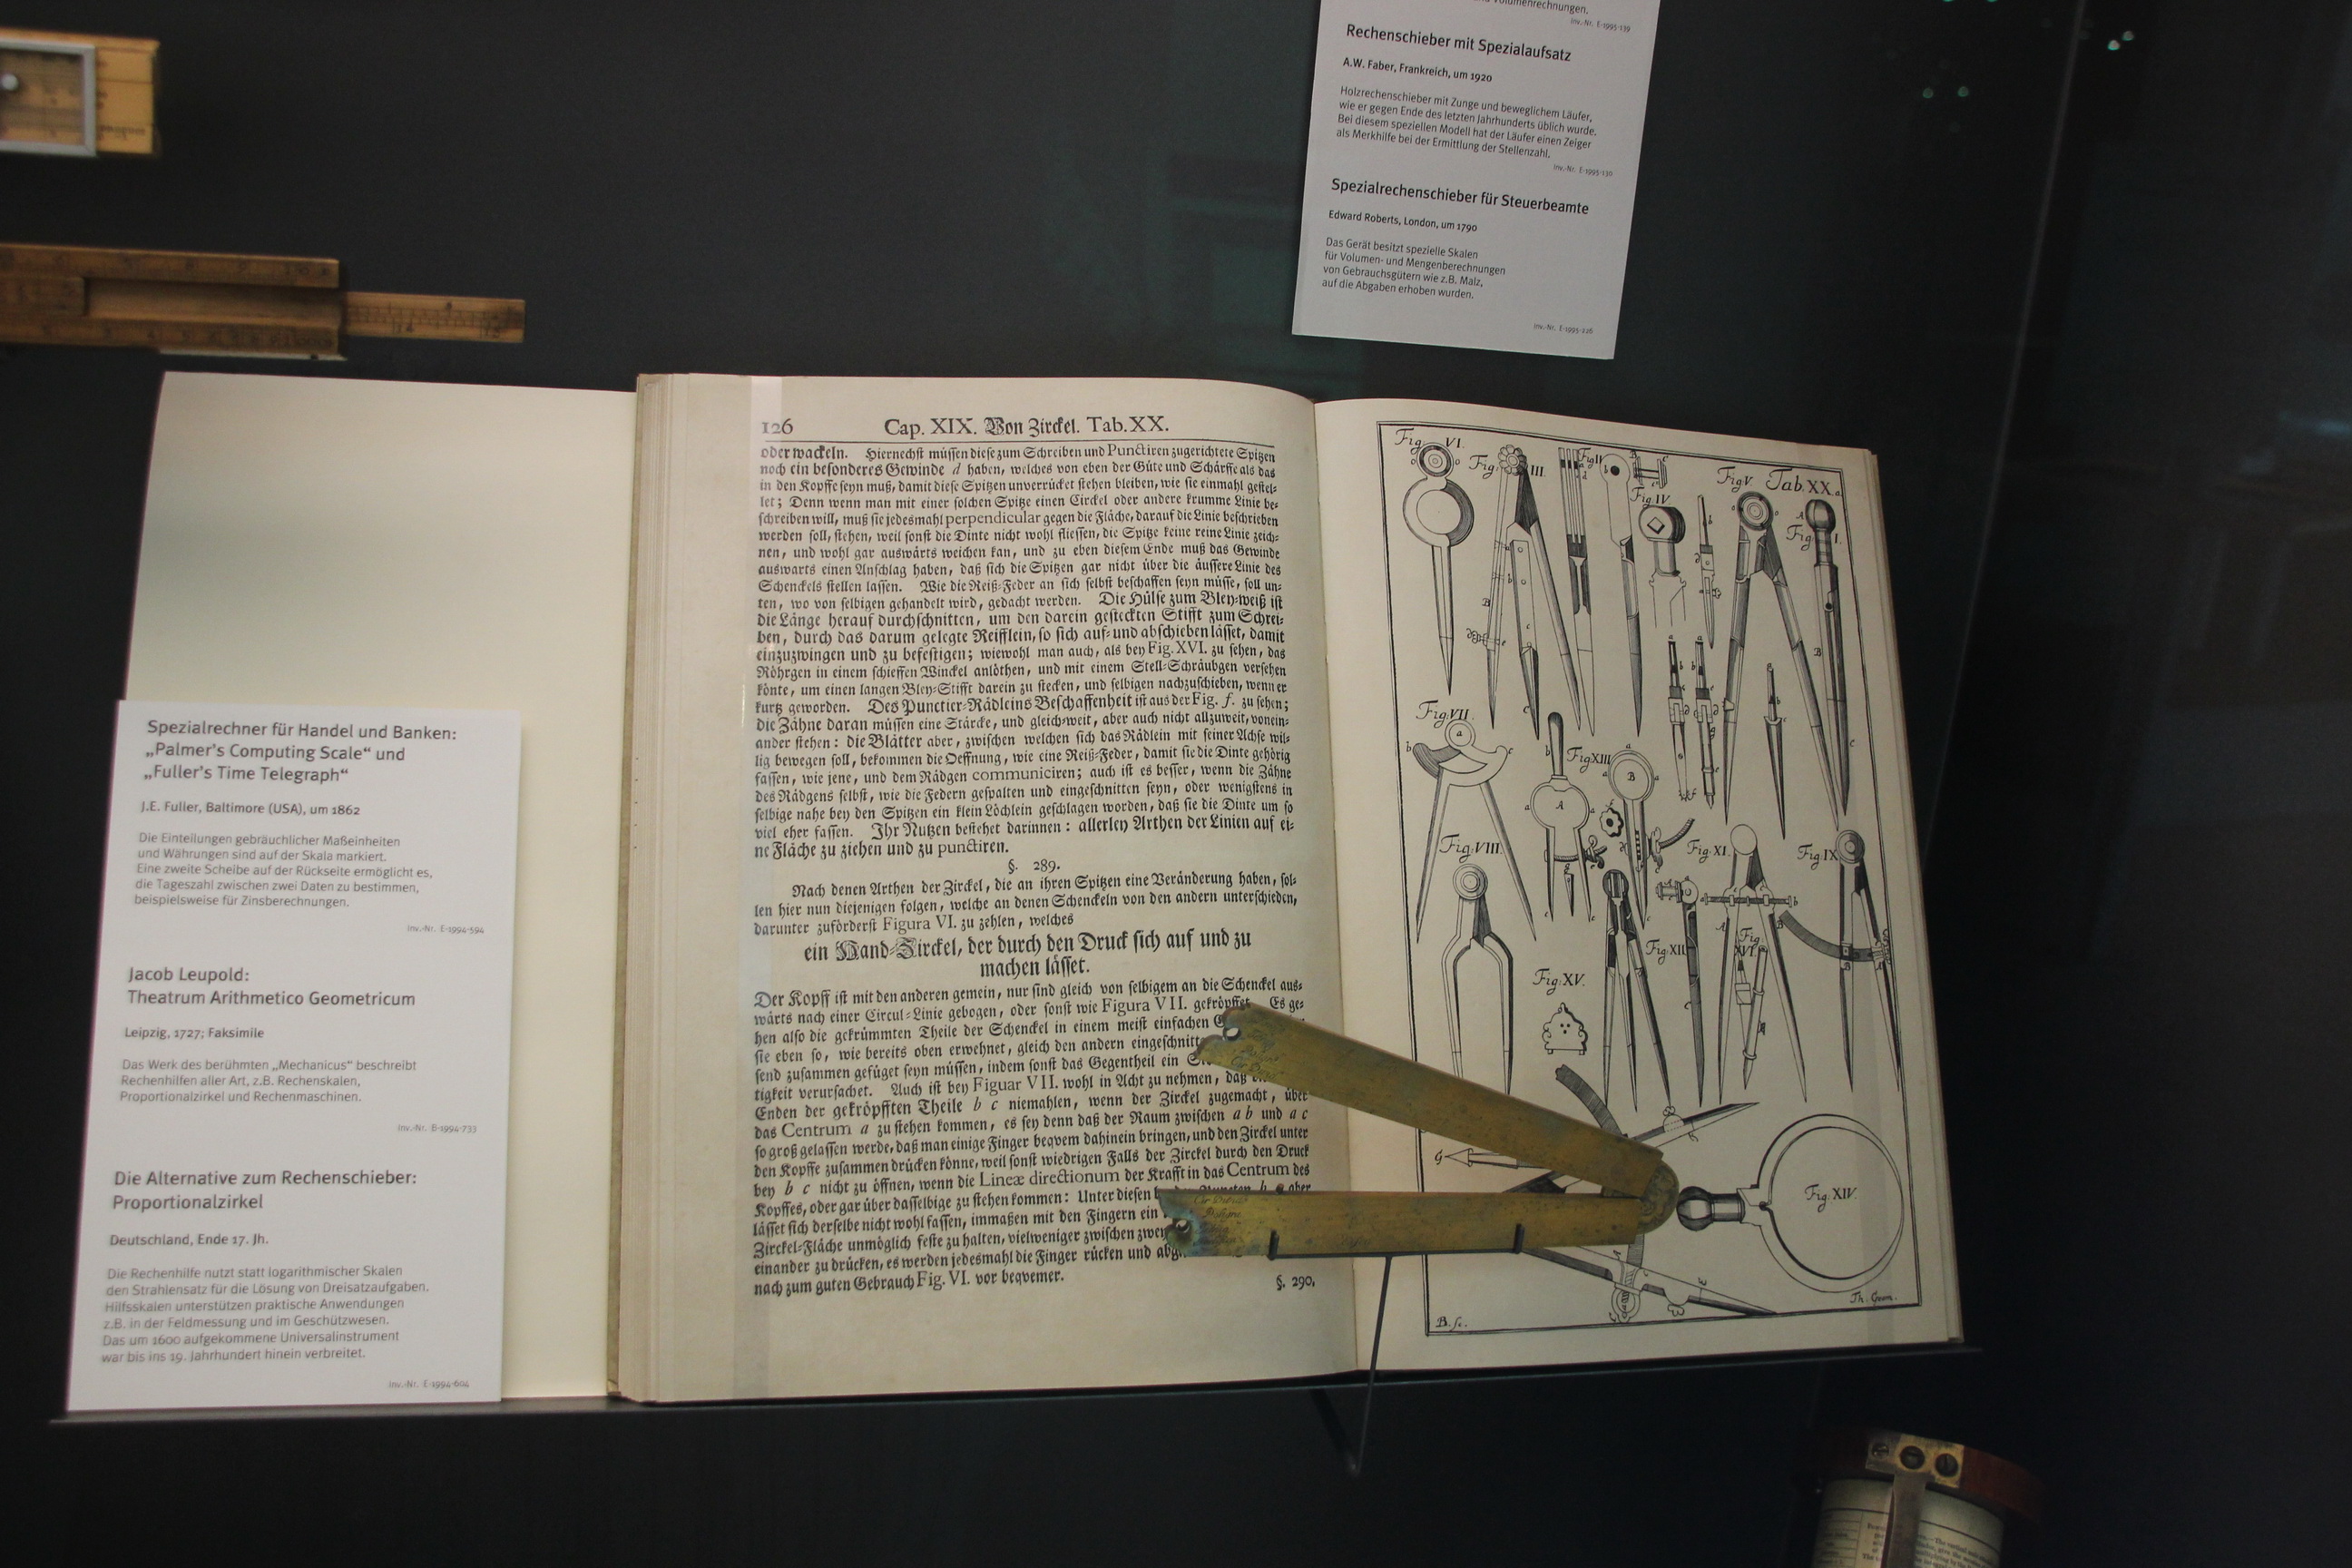 Volumenrechnungen.
Inv.-Nr. E-1995-139
Rechenschieber mit Spezialaufsatz
A.W. Faber, Frankreich, um 1920
Holzrechenschieber mit Zunge und beweglichem Läufer,
wie er gegen Ende des letzten Jahrhunderts üblich wurde.
Bei diesem speziellen Modell hat der Läufer einen Zeiger
als Merkhilfe bei der Ermittlung der Stellenzahl.
Inv.-Nr. E-1995-130
Spezialrechenschieber für Steuerbeamte
Edward Roberts, London, um 1790
Das Gerät besitzt spezielle Skalen
für Volumen- und Mengenberechnungen
von Gebrauchsgütern wie z.B. Malz,
auf die Abgaben erhoben wurden.
Inv.-Nr. E-1995-226
Spezialrechner für Handel und Banken:
„Palmer's Computing Scale“ und
„Fuller's Time Telegraph“
J.E. Fuller, Baltimore (USA), um 1862
Die Einteilungen gebräuchlicher Maßeinheiten
und Währungen sind auf der Skala markiert.
Eine zweite Scheibe auf der Rückseite ermöglicht es,
die Tageszahl zwischen zwei Daten zu bestimmen,
beispielsweise für Zinsberechnungen.
Inv.-Nr. E-1994-594
Jacob Leupold:
Theatrum Arithmetico Geometricum
Leipzig, 1727; Faksimile
Das Werk des berühmten „Mechanicus“ beschreibt
Rechenhilfen aller Art, z.B. Rechenskalen,
Proportionalzirkel und Rechenmaschinen.
Inv.-Nr. B-1994-733
Die Alternative zum Rechenschieber:
Proportionalzirkel
Deutschland, Ende 17. Jh.
Die Rechenhilfe nutzt statt logarithmischer Skalen
den Strahlensatz für die Lösung von Dreisatzaufgaben.
Hilfsskalen unterstützen praktische Anwendungen
z.B. in der Feldmessung und im Geschützwesen.
Das um 1600 aufgekommene Universalinstrument
war bis ins 19. Jahrhundert hinein verbreitet.
Inv.-Nr. E-1994-604
126 Cap. XIX. Von Zirckel. Tab. XX.
oder wackeln. Hiernechst müssen diese zum Schreiben und Punctiren zugerichtete Spitzen
noch ein besonderes Gewinde d haben, welches von eben der Güte und Schärffe als das
in den Kopffe seyn muß, damit diese Spitzen unverrücket stehen bleiben, wie sie einmahl gestel-
let; Denn wenn man mit einer solchen Spitze einen Circkel oder andere krumme Linie be-
schreiben will, muß sie jedesmahl perpendicular gegen die Fläche, darauf die Linie beschrieben
werden soll, stehen, weil sonst die Dinte nicht wohl fliessen, die Spitze keine reine Linie zeich-
nen, und wohl gar auswärts weichen kan, und zu eben diesem Ende muß das Gewinde
auswarts einen Anschlag haben, daß sich die Spitzen gar nicht über die äussere Linie des
Schenckels stellen lassen. Wie die Reiß-Feder an sich selbst beschaffen seyn müsse, soll un-
ten, wo von selbigen gehandelt wird, gedacht werden. Die Hülse zum Bley-weiß ist
die Länge herauf durchschnitten, um den darein gesteckten Stifft zum Schrei-
ben, durch das darum gelegte Reifflein, so sich auf- und abschieben lässet, damit
einzuzwingen und zu befestigen; wiewohl man auch, als bey Fig. XVI. zu sehen, das
Röhrgen in einem schieffen Winckel anlöthen, und mit einem Stell-Schräubgen versehen
könte, um einen langen Bley-Stifft darein zu stecken, und selbigen nachzuschieben, wenn er
kurtz geworden. Des Punctier-Rädleins Beschaffenheit ist aus der Fig. f. zu sehen;
die Zähne daran müssen eine Stärcke, und gleich-weit, aber auch nicht allzuweit, vonein-
ander stehen: die Blätter aber, zwischen welchen sich das Rädlein mit seiner Achse wil-
lig bewegen soll, bekommen die Oeffnung, wie eine Reiß-Feder, damit sie die Dinte gehörig
fassen, wie jene, und dem Rädgen communiciren; auch ist es besser, wenn die Zähne
des Rädgens selbst, wie die Federn gespalten und eingeschnitten seyn, oder wenigstens in
selbige nahe bey den Spitzen ein klein Löchlein geschlagen worden, daß sie die Dinte um so
viel eher fassen. Ihr Nutzen bestehet darinnen: allerley Arthen der Linien auf ei-
ne Fläche zu ziehen und zu punctiren.
§. 289.
Nach denen Arthen der Zirckel, die an ihren Spitzen eine Veränderung haben, sol-
len hier nun diejenigen folgen, welche an denen Schenckeln von den andern unterschieden,
darunter zuförderst Figura VI. zu zehlen, welches
ein Hand-Zirckel, der durch den Druck sich auf und zu
machen lässet.
Der Kopff ist mit den anderen gemein, nur sind gleich von selbigem an die Schenckel aus-
wärts nach einer Circul-Linie gebogen, oder sonst wie Figura VII. gekröpffet. Es ge-
hen also die gekrümmten Theile der Schenckel in einem meist einfachen
sie eben so, wie bereits oben erwehnet, gleich den andern eingeschnitt
send zusammen gefüget seyn müssen, indem sonst das Gegentheil ein
tigkeit verursachet. Auch ist bey Figuar VII. wohl in Acht zu nehmen, daß
Enden der gekröpfften Theile b c niemahlen, wenn der Zirckel zugemacht, über
das Centrum a zu stehen kommen, es sey denn daß der Raum zwischen a b und a c
so groß gelassen werde, daß man einige Finger beqvem dahinein bringen, und den Zirckel unter
den Kopffe zusammen drücken könne, weil sonst wiedrigen Falls der Zirckel durch den Druck
bey b c nicht zu öffnen, wenn die Lineæ directionum der Krafft in das Centrum des
Kopffes, oder gar über dasselbige zu stehen kommen: Unter diesen aber
lässet sich derselbe nicht wohl fassen, immaßen mit den Fingern ein
Zirckel-Fläche unmöglich feste zu halten, vielweniger zwischen zwey
einander zu drücken, es werden jedesmahl die Finger rücken und
nach zum guten Gebrauch Fig. VI. vor beqvemer.
§. 290,
Fig. VI.
Fig. III.
Fig. II
Fig. IV
Fig. V.
Tab. XX.
Fig. I.
Fig. VII.
Fig. XIII
Fig. VIII.
Fig. XI.
Fig. IX
Fig. XII
Fig. XVI.
Fig. XV.
Fig. XIV.
B. sc.
Th. Geom.